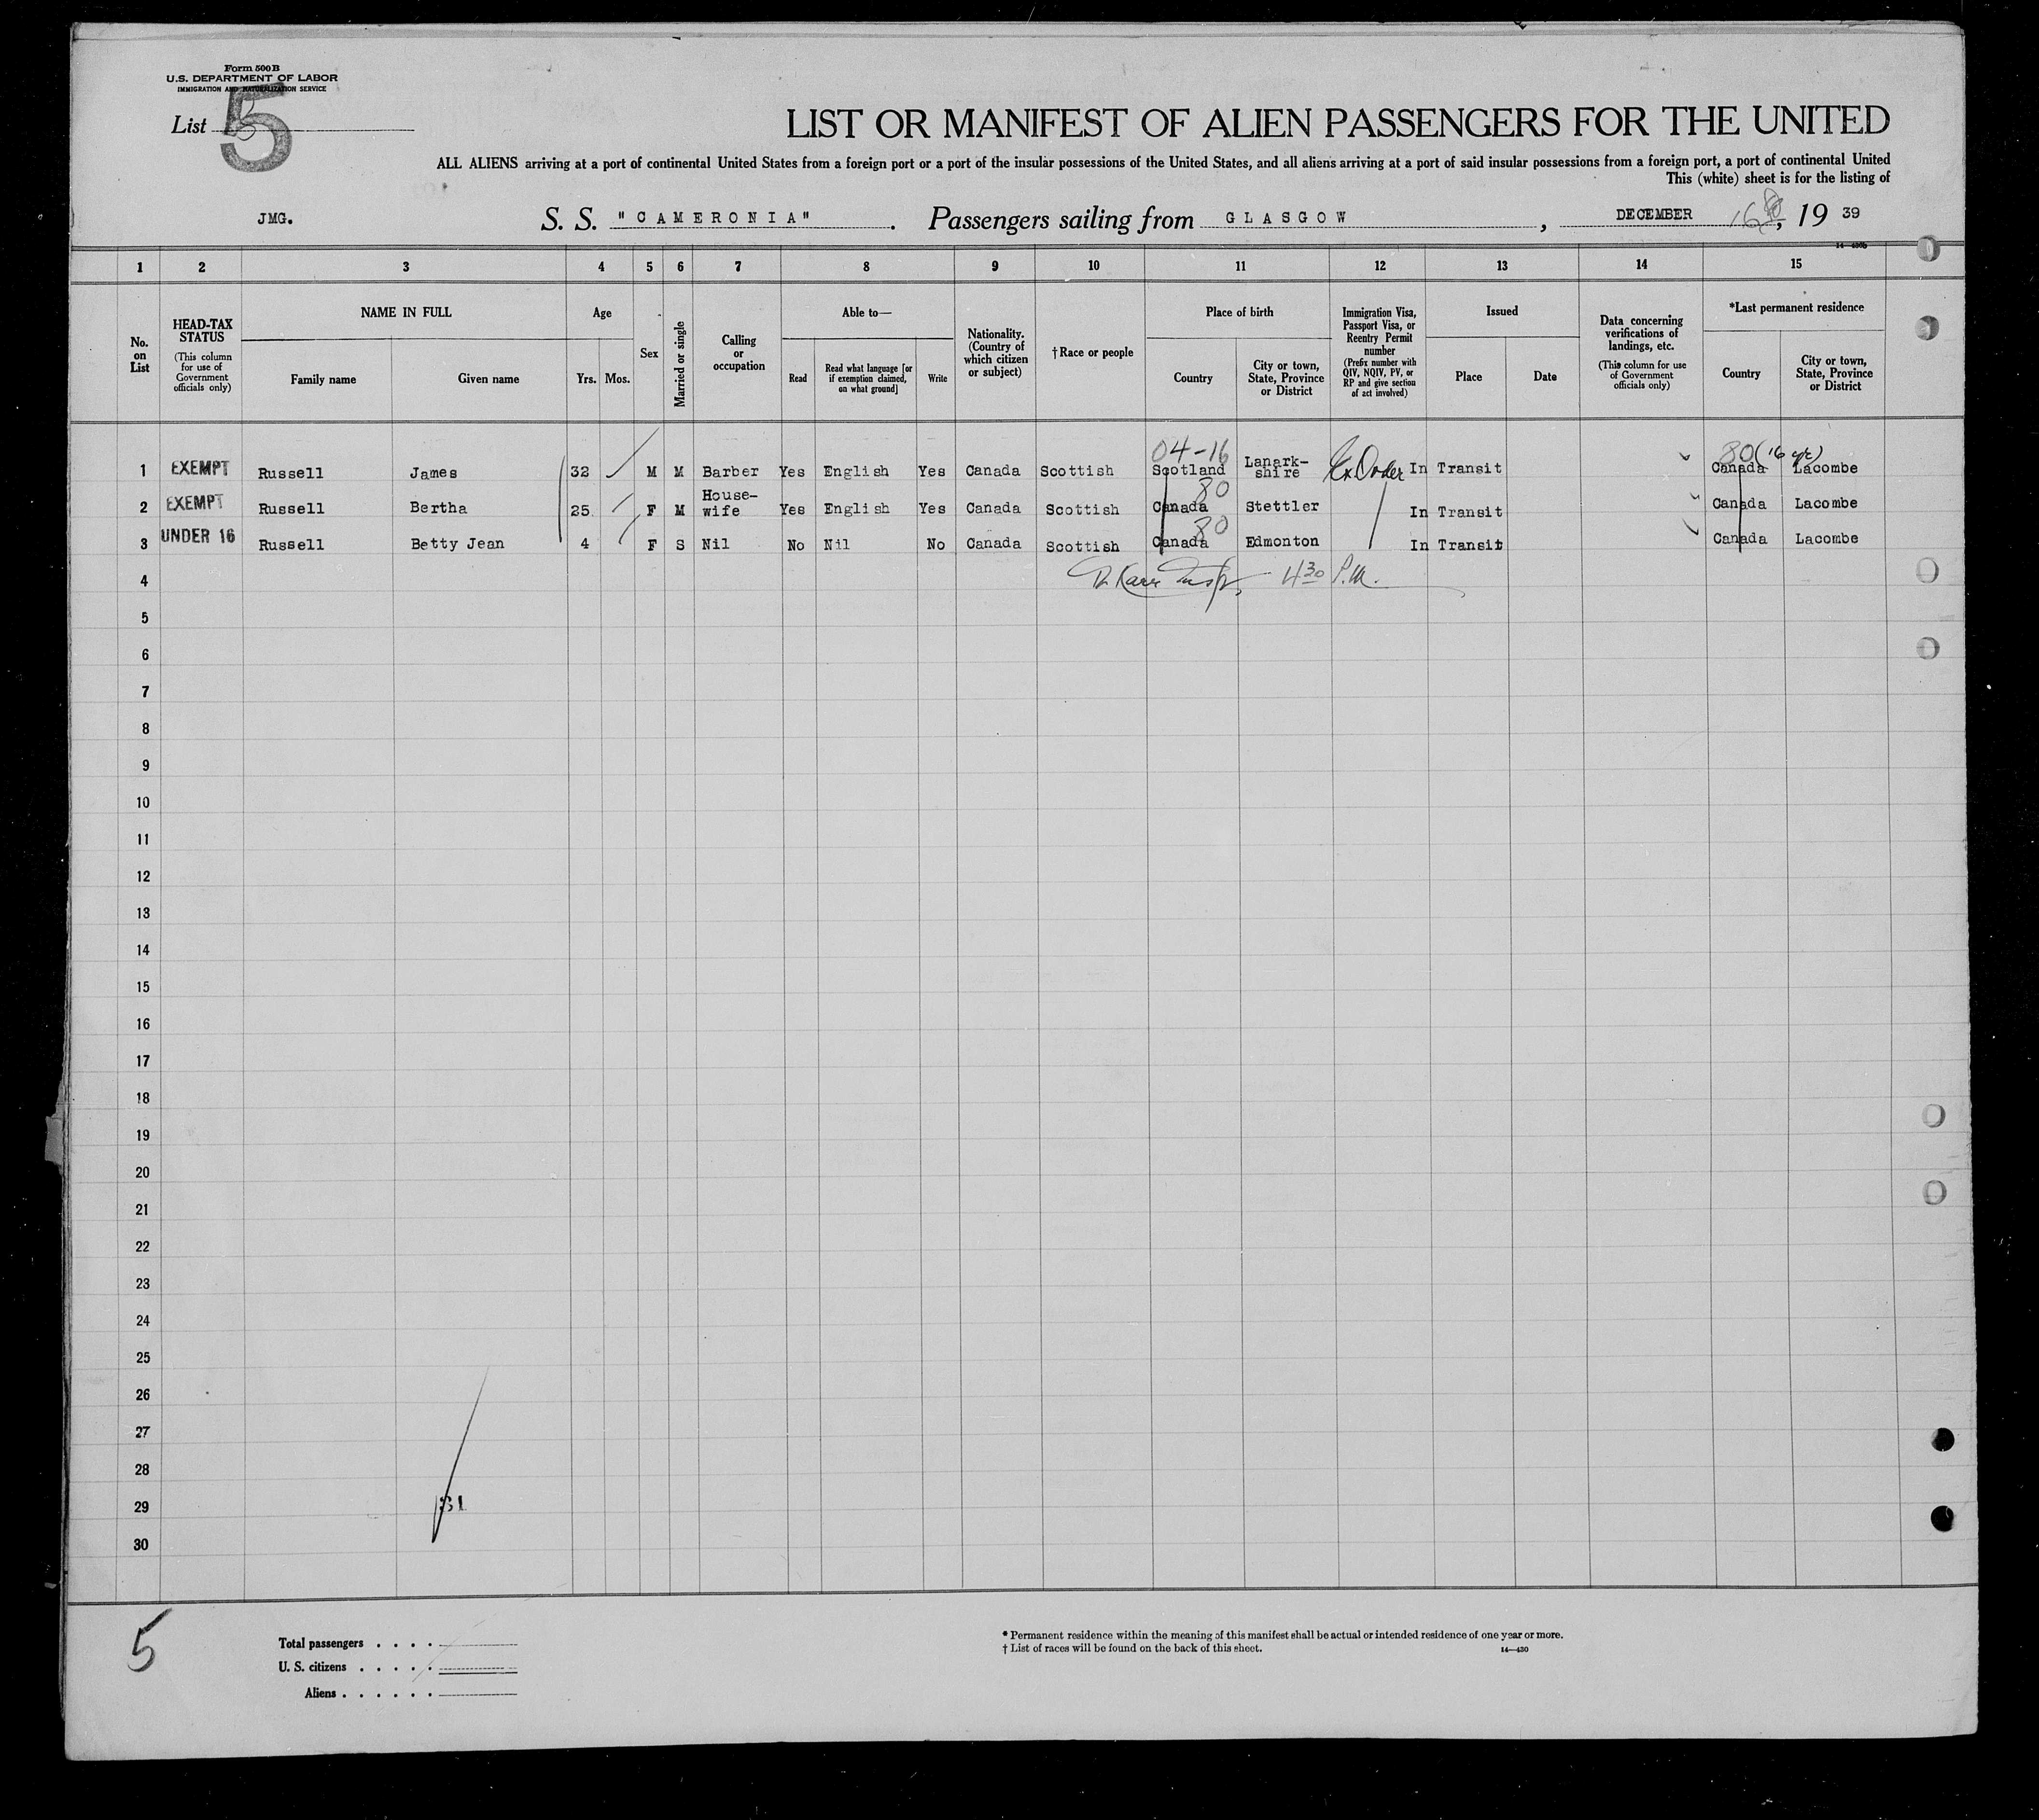 Form 500 B
U.S. DEPARTMENT OF LABOR
IMMIGRATION AND NATURALIZATION SERVICE
List 5
5
LIST OR MANIFEST OF ALIEN PASSENGERS FOR THE UNITED
ALL ALIENS arriving at a port of continental United States from a foreign port or a port of the insular possessions of the United States, and all aliens arriving at a port of said insular possessions from a foreign port, a port of continental United
This (white) sheet is for the listing of
JMG. S. S. "CAMERONIA". Passengers sailing from GLASGOW, DECEMBER 16, 19 39
1 2 3 4 5 6 7 8 9 10 11 12 13 14 15
No. on List
HEAD-TAX STATUS (This column for use of Government officials only)
NAME IN FULL
Family name Given name
Age
Yrs. Mos.
Sex
Married or single
Calling or occupation
Able to—
Read Read what language [or if exemption claimed, on what ground] Write
Nationality. (Country of which citizen or subject)
†Race or people
Place of birth
Country City or town, State, Province or District
Immigration Visa, Passport Visa, or Reentry Permit number (Prefix number with QIV, NQIV, PV, or RP and give section of act involved)
Issued
Place Date
Data concerning verifications of landings, etc. (This column for use of Government officials only)
*Last permanent residence
Country City or town, State, Province or District
04-16 80 (16 yr)
1 EXEMPT Russell James 32 M M Barber Yes English Yes Canada Scottish Scotland Lanark-shire Ex Order In Transit Canada Lacombe
80
2 EXEMPT Russell Bertha 25 F M House-wife Yes English Yes Canada Scottish Canada Stettler In Transit Canada Lacombe
80
3 UNDER 16 Russell Betty Jean 4 F S Nil No Nil No Canada Scottish Canada Edmonton In Transit Canada Lacombe
4 Insp. 4 30 P.M.
5
6
7
8
9
10
11
12
13
14
15
16
17
18
19
20
21
22
23
24
25
26
27
28
29 31
30
5
Total passengers . . . .
U. S. citizens . . . . .
Aliens . . . . . .
* Permanent residence within the meaning of this manifest shall be actual or intended residence of one year or more.
† List of races will be found on the back of this sheet. 14—430